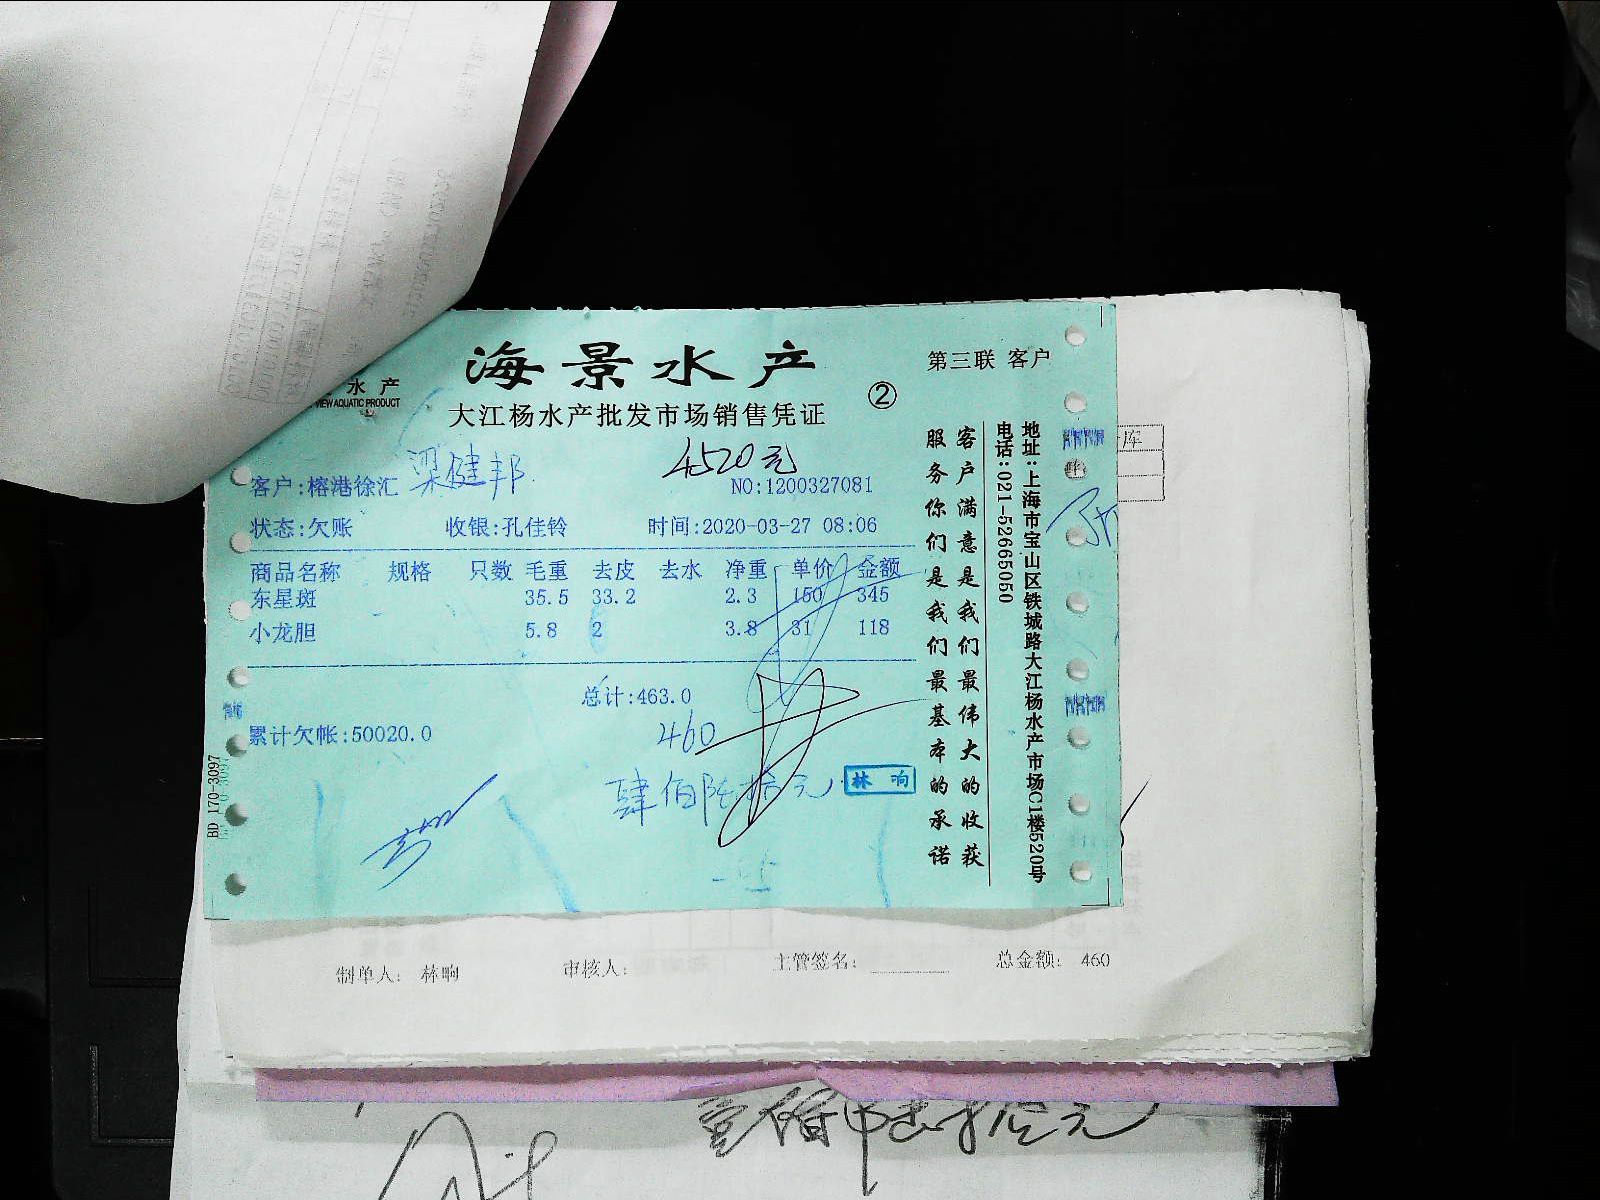 海景水产
第三联 客户
水产
VIEW AQUATIC PRODUCT
大江杨水产批发市场销售凭证
②
梁健邦
4520元
客户:榕港徐汇
NO:1200327081
状态:欠账 收银:孔佳铃 时间:2020-03-27 08:06
商品名称 规格 只数 毛重 去皮 去水 净重 单价 金额
东星斑 35.5 33.2 2.3 150 345
小龙胆 5.8 2 3.8 31 118
总计:463.0
累计欠帐:50020.0
460
肆佰陆拾元
林响
客户满意是我们最伟大的收获
服务你们是我们最基本的承诺
地址:上海市宝山区铁城路大江杨水产市场C1楼520号
电话:021-52665050
BD 170-3097
库
制单人: 林响 审核人: 主管签名: 总金额: 460